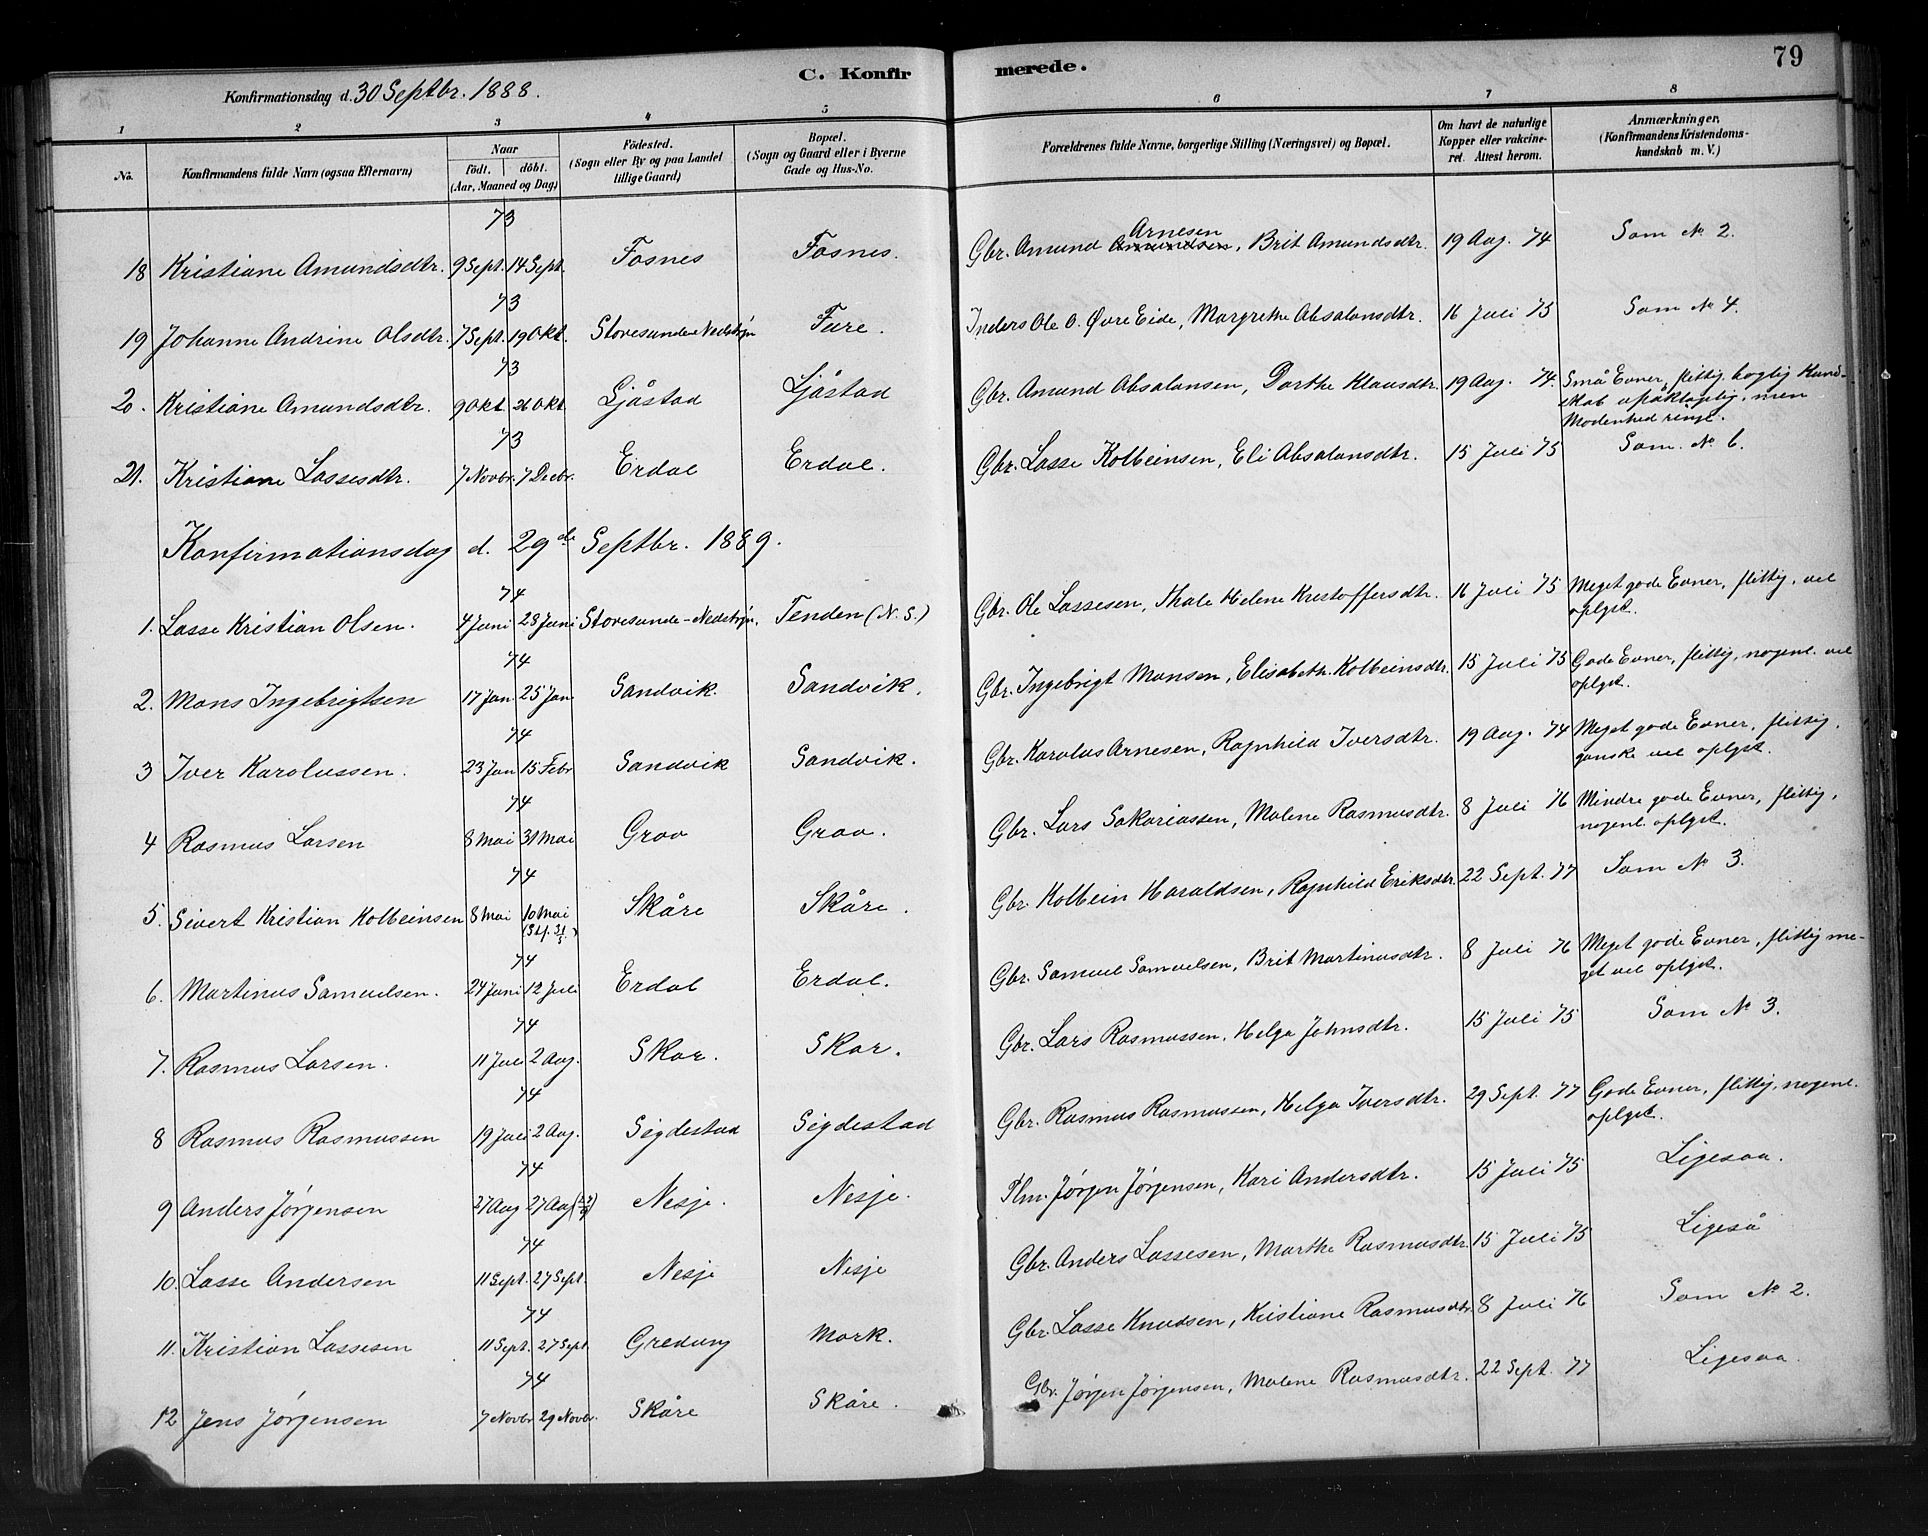 79
C. Konfirmerede.
Konfirmationsdag d. 30 Septbr. 1888.
1 2 3 4 5 6 7 8
No. Konfirmandens fulde Navn (ogsaa Efternavn) Naar födt. döbt. (Aar, Maaned og Dag) Födested. (Sogn eller By og paa Landet tillige Gaard) Bopæl. (Sogn og Gaard eller i Byerne Gade og Hus-No. Forældrenes fulde Navne, borgerlige Stilling (Næringsvei) og Bopæl. Om havt de naturlige Kopper eller vakcineret. Attest herom. Anmærkninger. (Konfirmandens Kristendomskundskab m. V.)
73
18 Kristiane Amundsdtr. 9 Sept. 14 Sept. Fosnes Fosnes. Gbr. Amund Amundsen Arnesen, Brit Amundsdtr. 19 Aug. 74 Som No 2.
73
19 Johanne Andrine Olsdtr. 7 Sept. 19 Okt. Storesunde Nedstryn Fure. Inders Ole O. Øvre Eide, Margrethe Absalonsdtr. 16 Juli 75 Som No 4.
73
20. Kristiane Amundsdtr. 9 Okt. 26 Okt. Ljåstad Ljåstad Gbr. Amund Absalonsen, Dorthe Klausdtr. 19 Aug. 74. Små Evner, flittig, boglig Kund-
skab upåklagelig, men
Modenhed ringe.
73
21. Kristiane Lassesdtr. 7 Novbr. 7 Decbr. Erdal Erdal. Gbr. Lasse Kolbeinsen, Eli Absalonsdtr. 15 Juli 75 Som No 6.
Konfirmationsdag d. 29de Septbr. 1889.
74
1. Lasse Kristian Olsen. 4 Juni 28 Juni Storesunde-Nedstryn. Tenden (N. S.) Gbr. Ole Lassesen, Thale Helene Kristoffersdtr. 16 Juli 75 Meget gode Evner, flittig, vel
oplyst.
74
2. Mons Ingebrigtsen 17 Jan. 25 Jan. Sandvik. Sandvik. Gbr. Ingebrigt Monsen, Elisabeth Kolbeinsdtr. 15 Juli 75 Gode Evner, flittig, nogenl. vel
oplyst.
74
3 Iver Karolussen. 23 Jan 15 Febr Sandvik Sandvik. Gbr. Karolus Arnesen, Ragnhild Iversdtr. 19 Aug. 74 Meget gode Evner, flittig,
ganske vel oplyst.
74
4 Rasmus Larsen 8 Mai 31 Mai Grov Grov. Gbr. Lars Sakariassen, Malene Rasmusdtr. 8 Juli 76 Mindre gode Evner, flittig,
nogenl. oplyst.
74
5. Sivert Kristian Kolbeinsen 8 Mai 10 Mai (St. 31/5) Skåre Skåre. Gbr. Kolbein Haraldsen, Ragnhild Eriksdtr. 22 Sept. 77 Som No 3.
74
6. Martinus Samuelsen. 24 Juni 12 Juli Erdal Erdal. Gbr. Samuel Samuelsen, Brit Martinusdtr. 8 Juli 76 Meget gode Evner, flittig me-
get vel oplyst.
74
7. Rasmus Larsen. 11 Juli 2 Aug. Skar. Skar. Gbr. Lars Rasmussen, Helga Johnsdtr. 15 Juli 75 Som No 3.
74
8 Rasmus Rasmussen 19 Juli 2 Aug. Sigdestad Sigdestad Gbr. Rasmus Rasmussen, Helga Iversdtr. 29 Sept. 77 Gode Evner, flittig, nogenl.
oplyst.
74
9 Anders Jørgensen 27 Aug 27 Aug Nesje. Nesje. Plm. Jørgen Jørgensen, Kari Andersdtr. 15 Juli 75 Ligesaa.
74
10. Lasse Andersen 11 Sept. 27 Sept. Nesje Nesje Gbr. Anders Lassesen, Marthe Rasmusdtr. 15 Juli 75 Ligeså
74
11. Kristian Lassesen 11 Sept. 27 Sept Gredung Mork. Gbr. Lasse Knudsen, Kristiane Rasmusdtr. 8 Juli 76 Som No 2.
74
12 Jens Jørgensen 7 Novbr 29 Novbr. Skåre Skåre. Gbr. Jørgen Jørgensen, Malene Rasmusdtr. 22 Sept. 77 Ligesaa.